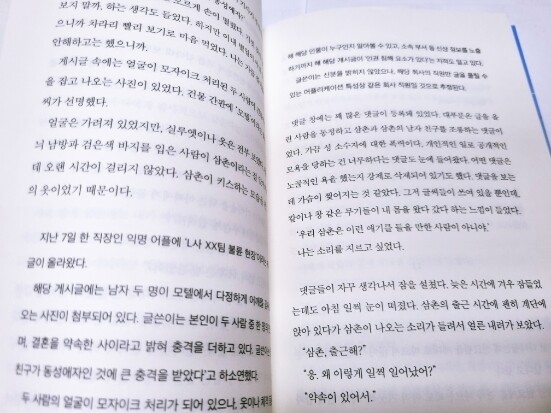 보지 말까, 하는 생각도 들었다. 하지만 이내
으니까 차라리 빨리 보기로 마음 먹었다. 나는
안해하고는 했으니까.
게시글 속에는 얼굴이 모자이크 처리된 두 사람이
을 잡고 나오는 사진이 있었다. 건물 간판에
씨가 선명했다.
얼굴은 가려져 있었지만, 실루엣이나 옷은
의 남방과 검은색 바지를 입은 사람이 삼촌이라는
데 오랜 시간이 걸리지 않았다. 삼촌이 키스하는
의 옷이었기 때문이다.
지난 7일 한 직장인 익명 어플에 'L사 XX팀 불륜 현장'
글이 올라왔다.
해당 게시글에는 남자 두 명이 모텔에서 다정하게
오는 사진이 첨부되어 있다. 글쓴이는 본인이 두 사람 중 한
며, 결혼을 약속한 사이라고 밝혀 충격을 더하고 있다.
친구가 동성애자인 것에 큰 충격을 받았다'고 하소연했다.
두 사람의 얼굴이 모자이크 처리가 되어 있으나, 옷이나
해 해당 인물이 누구인지 알아볼 수 있고, 소속 부서 등 신상 정보를 노출
하기까지 해 해당 게시글이 '인권 침해 요소가 있다'는 지적도 일고 있다.
글쓴이는 신분을 밝히지 않았으나, 해당 회사의 직원만 글을 올릴 수
있는 어플리케이션 특성상 같은 회사 직원일 것으로 추정된다.
댓글 창에는 꽤 많은 댓글이 등록돼 있었다. 대부분은 글을 올
린 사람을 동정하고 삼촌과 삼촌의 남자 친구를 조롱하는 댓글이
었다. 가끔 성 소수자에 대한 폭력이었다. 개인적인 일로 공개적인
모욕을 당하는 건 너무하다는 댓글도 눈에 들어왔다. 어떤 댓글은
노골적인 욕은 했는지 강제로 삭제되어 있기도 했다. 댓글을 보는
데 가슴이 찢어지는 것 같았다. 그저 글씨들이 쓰여 있을 뿐인데,
칼이나 창 같은 무기들이 내 몸을 왔다 갔다 하는 느낌이 들었다.
'우리 삼촌은 이런 얘기를 들을 만한 사람이 아니야.'
나는 소리를 지르고 싶었다.
댓글들이 자꾸 생각나서 잠을 설쳤다. 늦은 시간에 겨우 잠들었
는데도 아침 일찍 눈이 떠졌다. 삼촌의 출근 시간에 괜히 계단에
앉아 있다가 삼촌이 나오는 소리가 들려서 얼른 내려가 보았다.
"삼촌, 출근해?"
"응. 왜 이렇게 일찍 일어났어?"
"약속이 있어서."